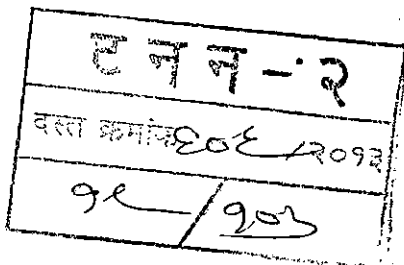 ट न न - २
दस्त क्रमांक ६०६ /२०१३
१८ / १०३